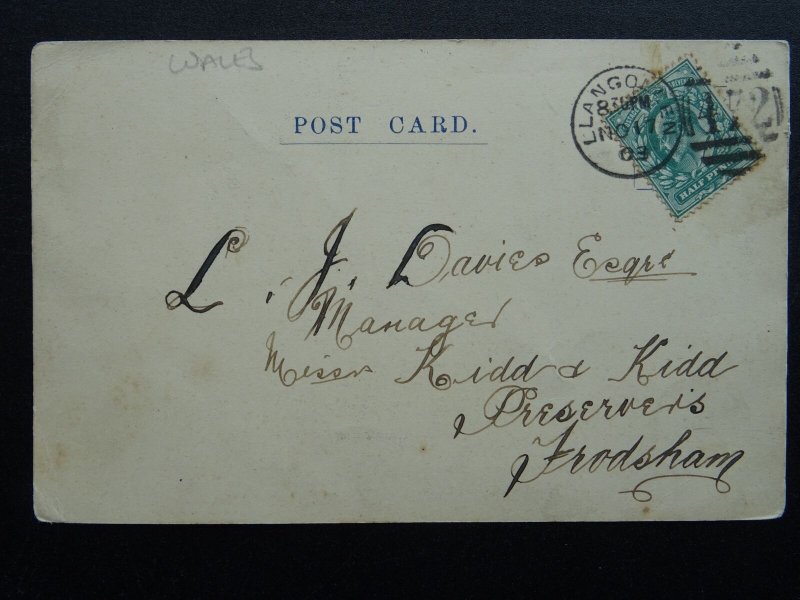 WALES
POST CARD.
LLANGOLLEN
8 30PM
NO 1
03
HALF PENNY
L. J. Davies Esqre
Manager
Messrs Kidd & Kidd
Preservers
Frodsham